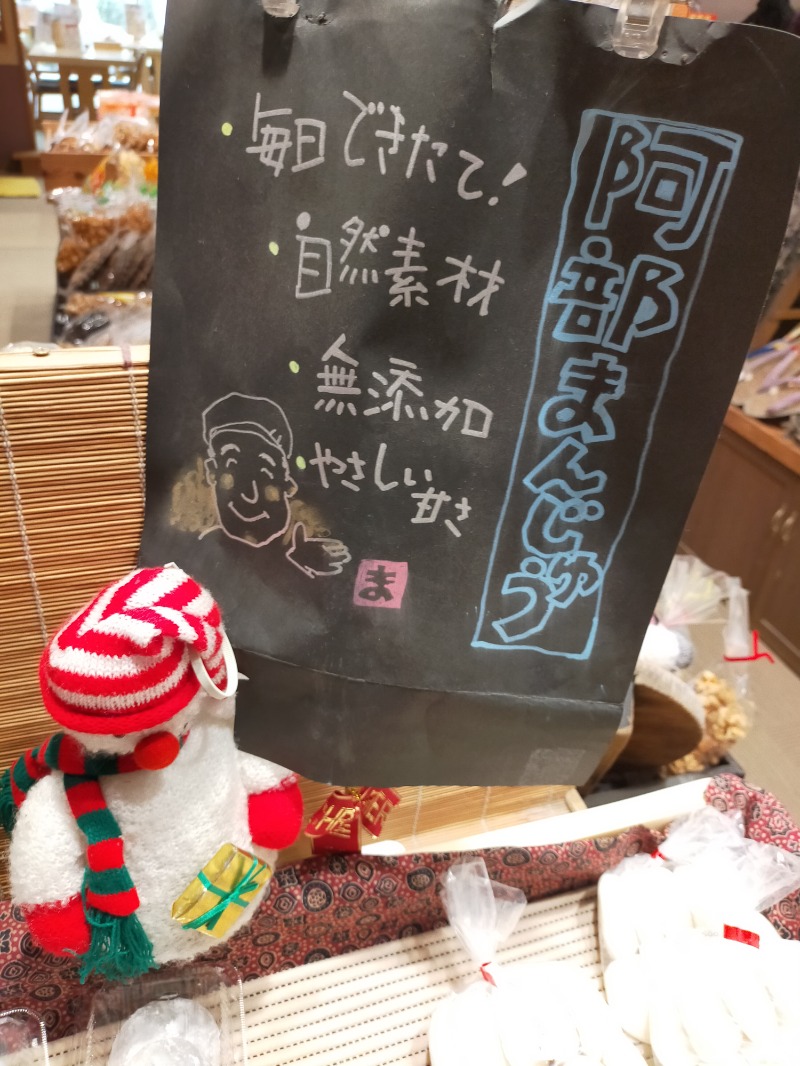 阿部まんじゅう
・毎日できたて!
・自然素材
・無添加
・やさしい
甘さ
ま